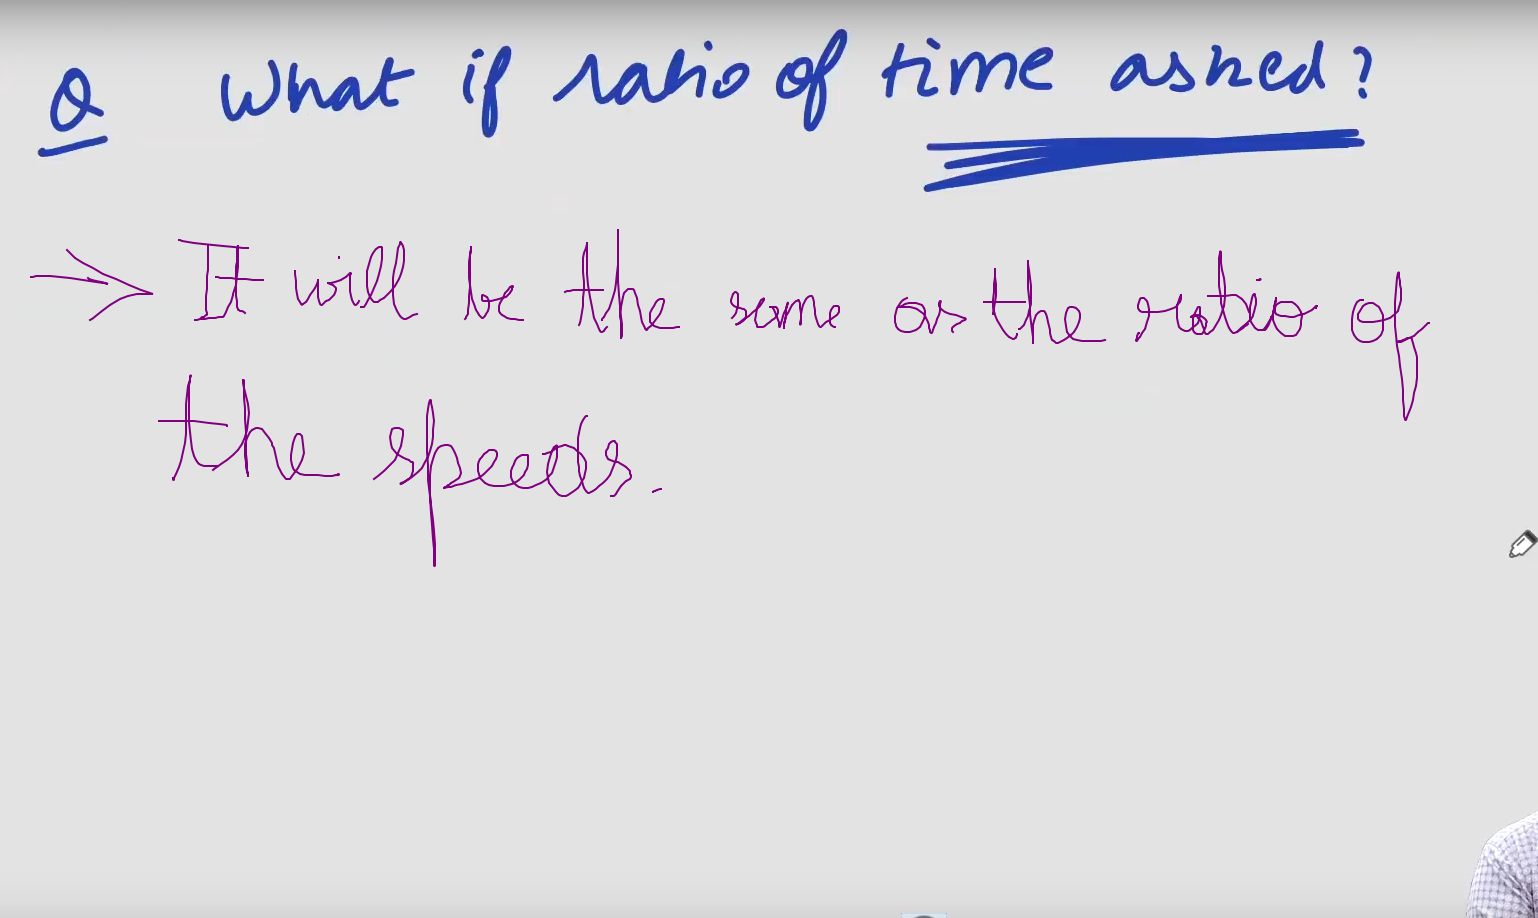 Q What if ratio of time asked?
→ It will be the same as the ratio of
the speeds.